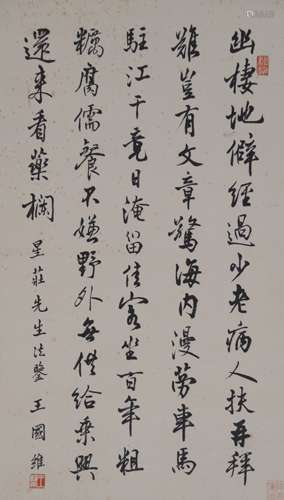 幽棲地僻經過少老病人扶再拜
難豈有文章驚海內漫勞車馬
駐江干竟日淹留佳客坐百年粗
糲腐儒餐不嫌野外無供給乘興
還來看藥欄
星莊先生法鑒 王國維